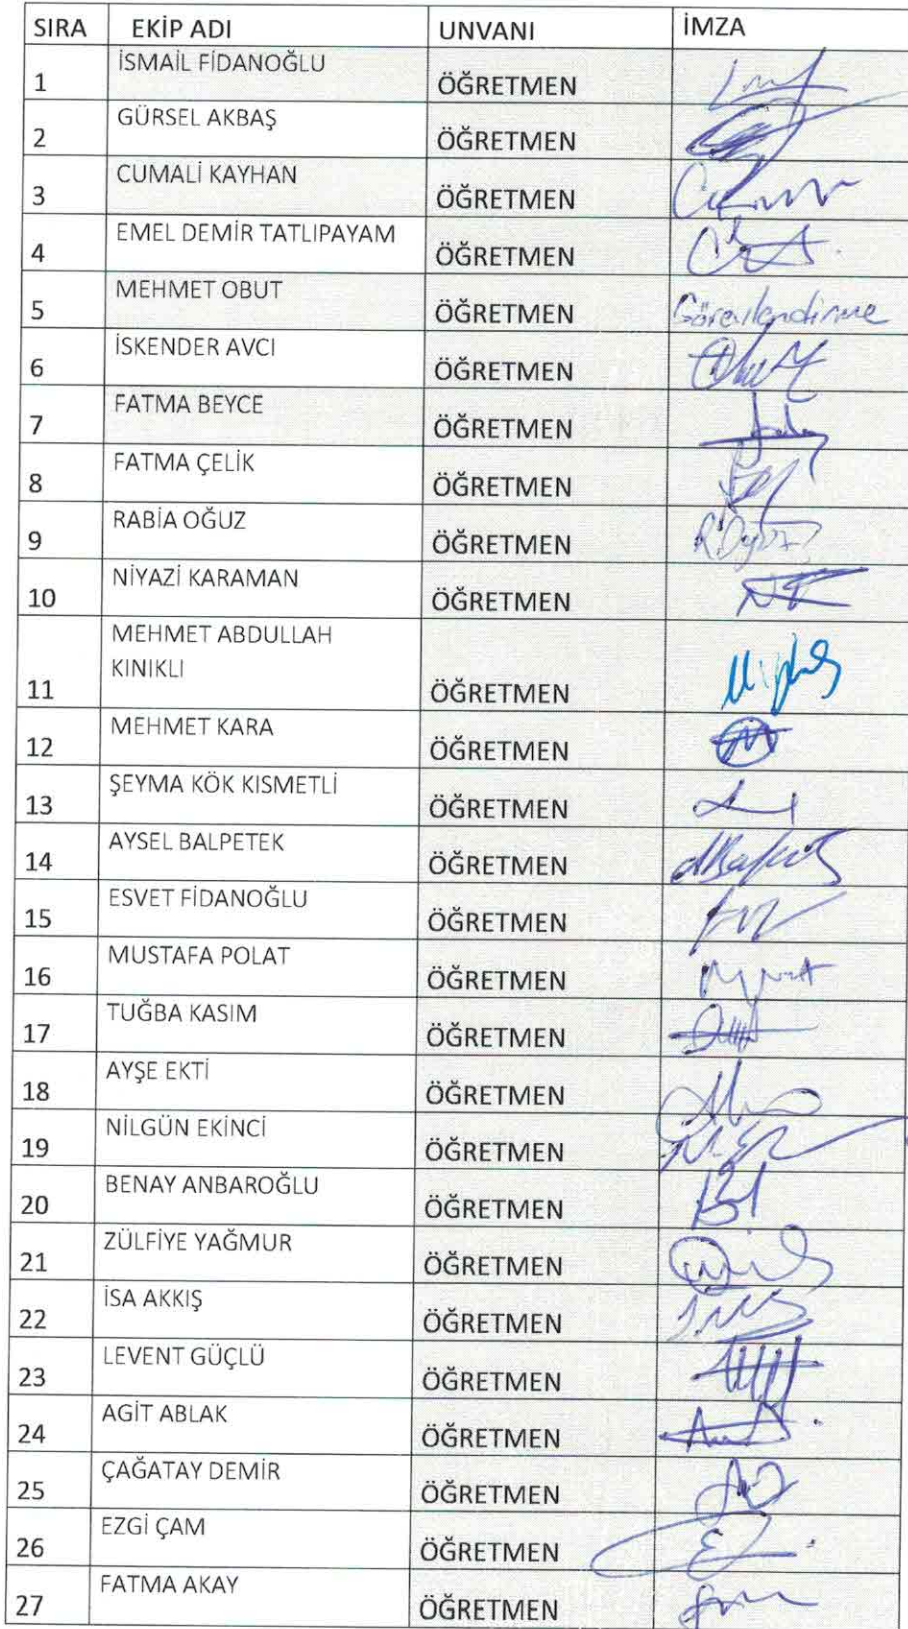 SIRA EKİP ADI UNVANI İMZA
1 İSMAİL FİDANOĞLU ÖĞRETMEN
2 GÜRSEL AKBAŞ ÖĞRETMEN
3 CUMALİ KAYHAN ÖĞRETMEN
4 EMEL DEMİR TATLIPAYAM ÖĞRETMEN
5 MEHMET OBUT ÖĞRETMEN Görevlendirme
6 İSKENDER AVCI ÖĞRETMEN
7 FATMA BEYCE ÖĞRETMEN
8 FATMA ÇELİK ÖĞRETMEN
9 RABİA OĞUZ ÖĞRETMEN
10 NİYAZİ KARAMAN ÖĞRETMEN
MEHMET ABDULLAH
KINIKLI
11 ÖĞRETMEN
12 MEHMET KARA ÖĞRETMEN
13 ŞEYMA KÖK KISMETLİ ÖĞRETMEN
14 AYSEL BALPETEK ÖĞRETMEN
15 ESVET FİDANOĞLU ÖĞRETMEN
16 MUSTAFA POLAT ÖĞRETMEN
17 TUĞBA KASIM ÖĞRETMEN
18 AYŞE EKTİ ÖĞRETMEN
19 NİLGÜN EKİNCİ ÖĞRETMEN
20 BENAY ANBAROĞLU ÖĞRETMEN
21 ZÜLFİYE YAĞMUR ÖĞRETMEN
22 İSA AKKIŞ ÖĞRETMEN
23 LEVENT GÜÇLÜ ÖĞRETMEN
24 AGİT ABLAK ÖĞRETMEN
25 ÇAĞATAY DEMİR ÖĞRETMEN
26 EZGİ ÇAM ÖĞRETMEN
27 FATMA AKAY ÖĞRETMEN